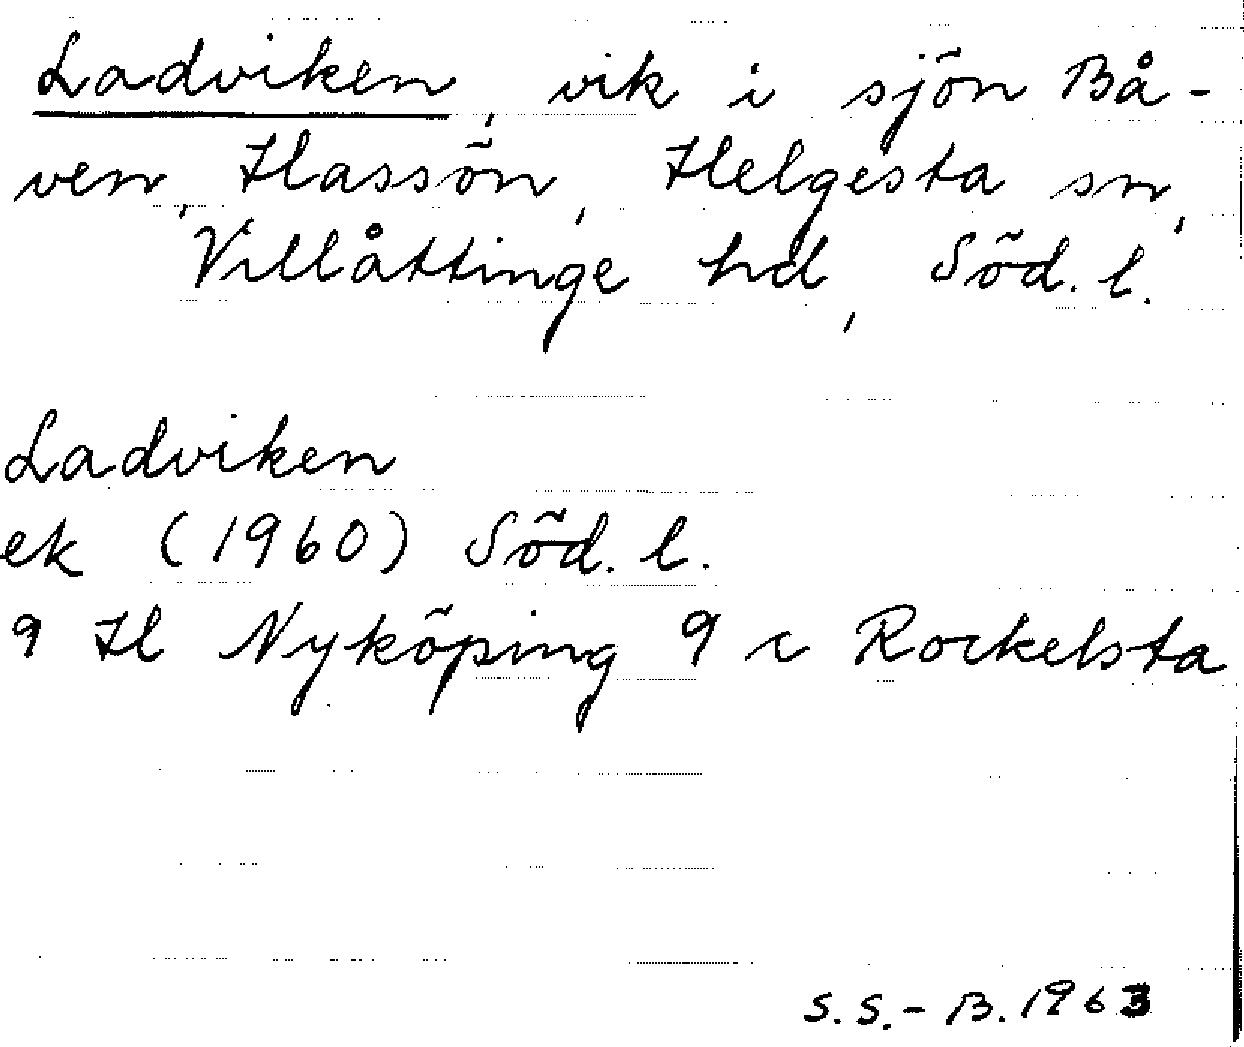 Ladviken, vik i sjön Bå-
ven, Hassön, Helgesta sn,
Villåttinge hd, Söd. l.
Ladviken
ek (1960) Söd. l.
9 H Nyköping 9 c Rockelsta
S. S.-B. 1963